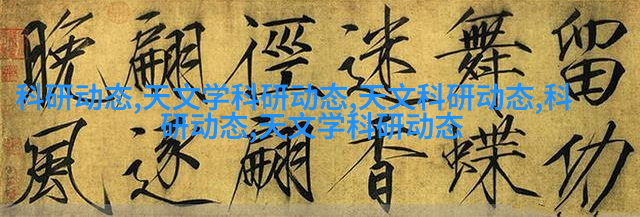 留功
舞蝶
迷香
徑翩
翩逐
晚風
科研动态,天文学科研动态,天文科研动态,科
研动态,天文学科研动态